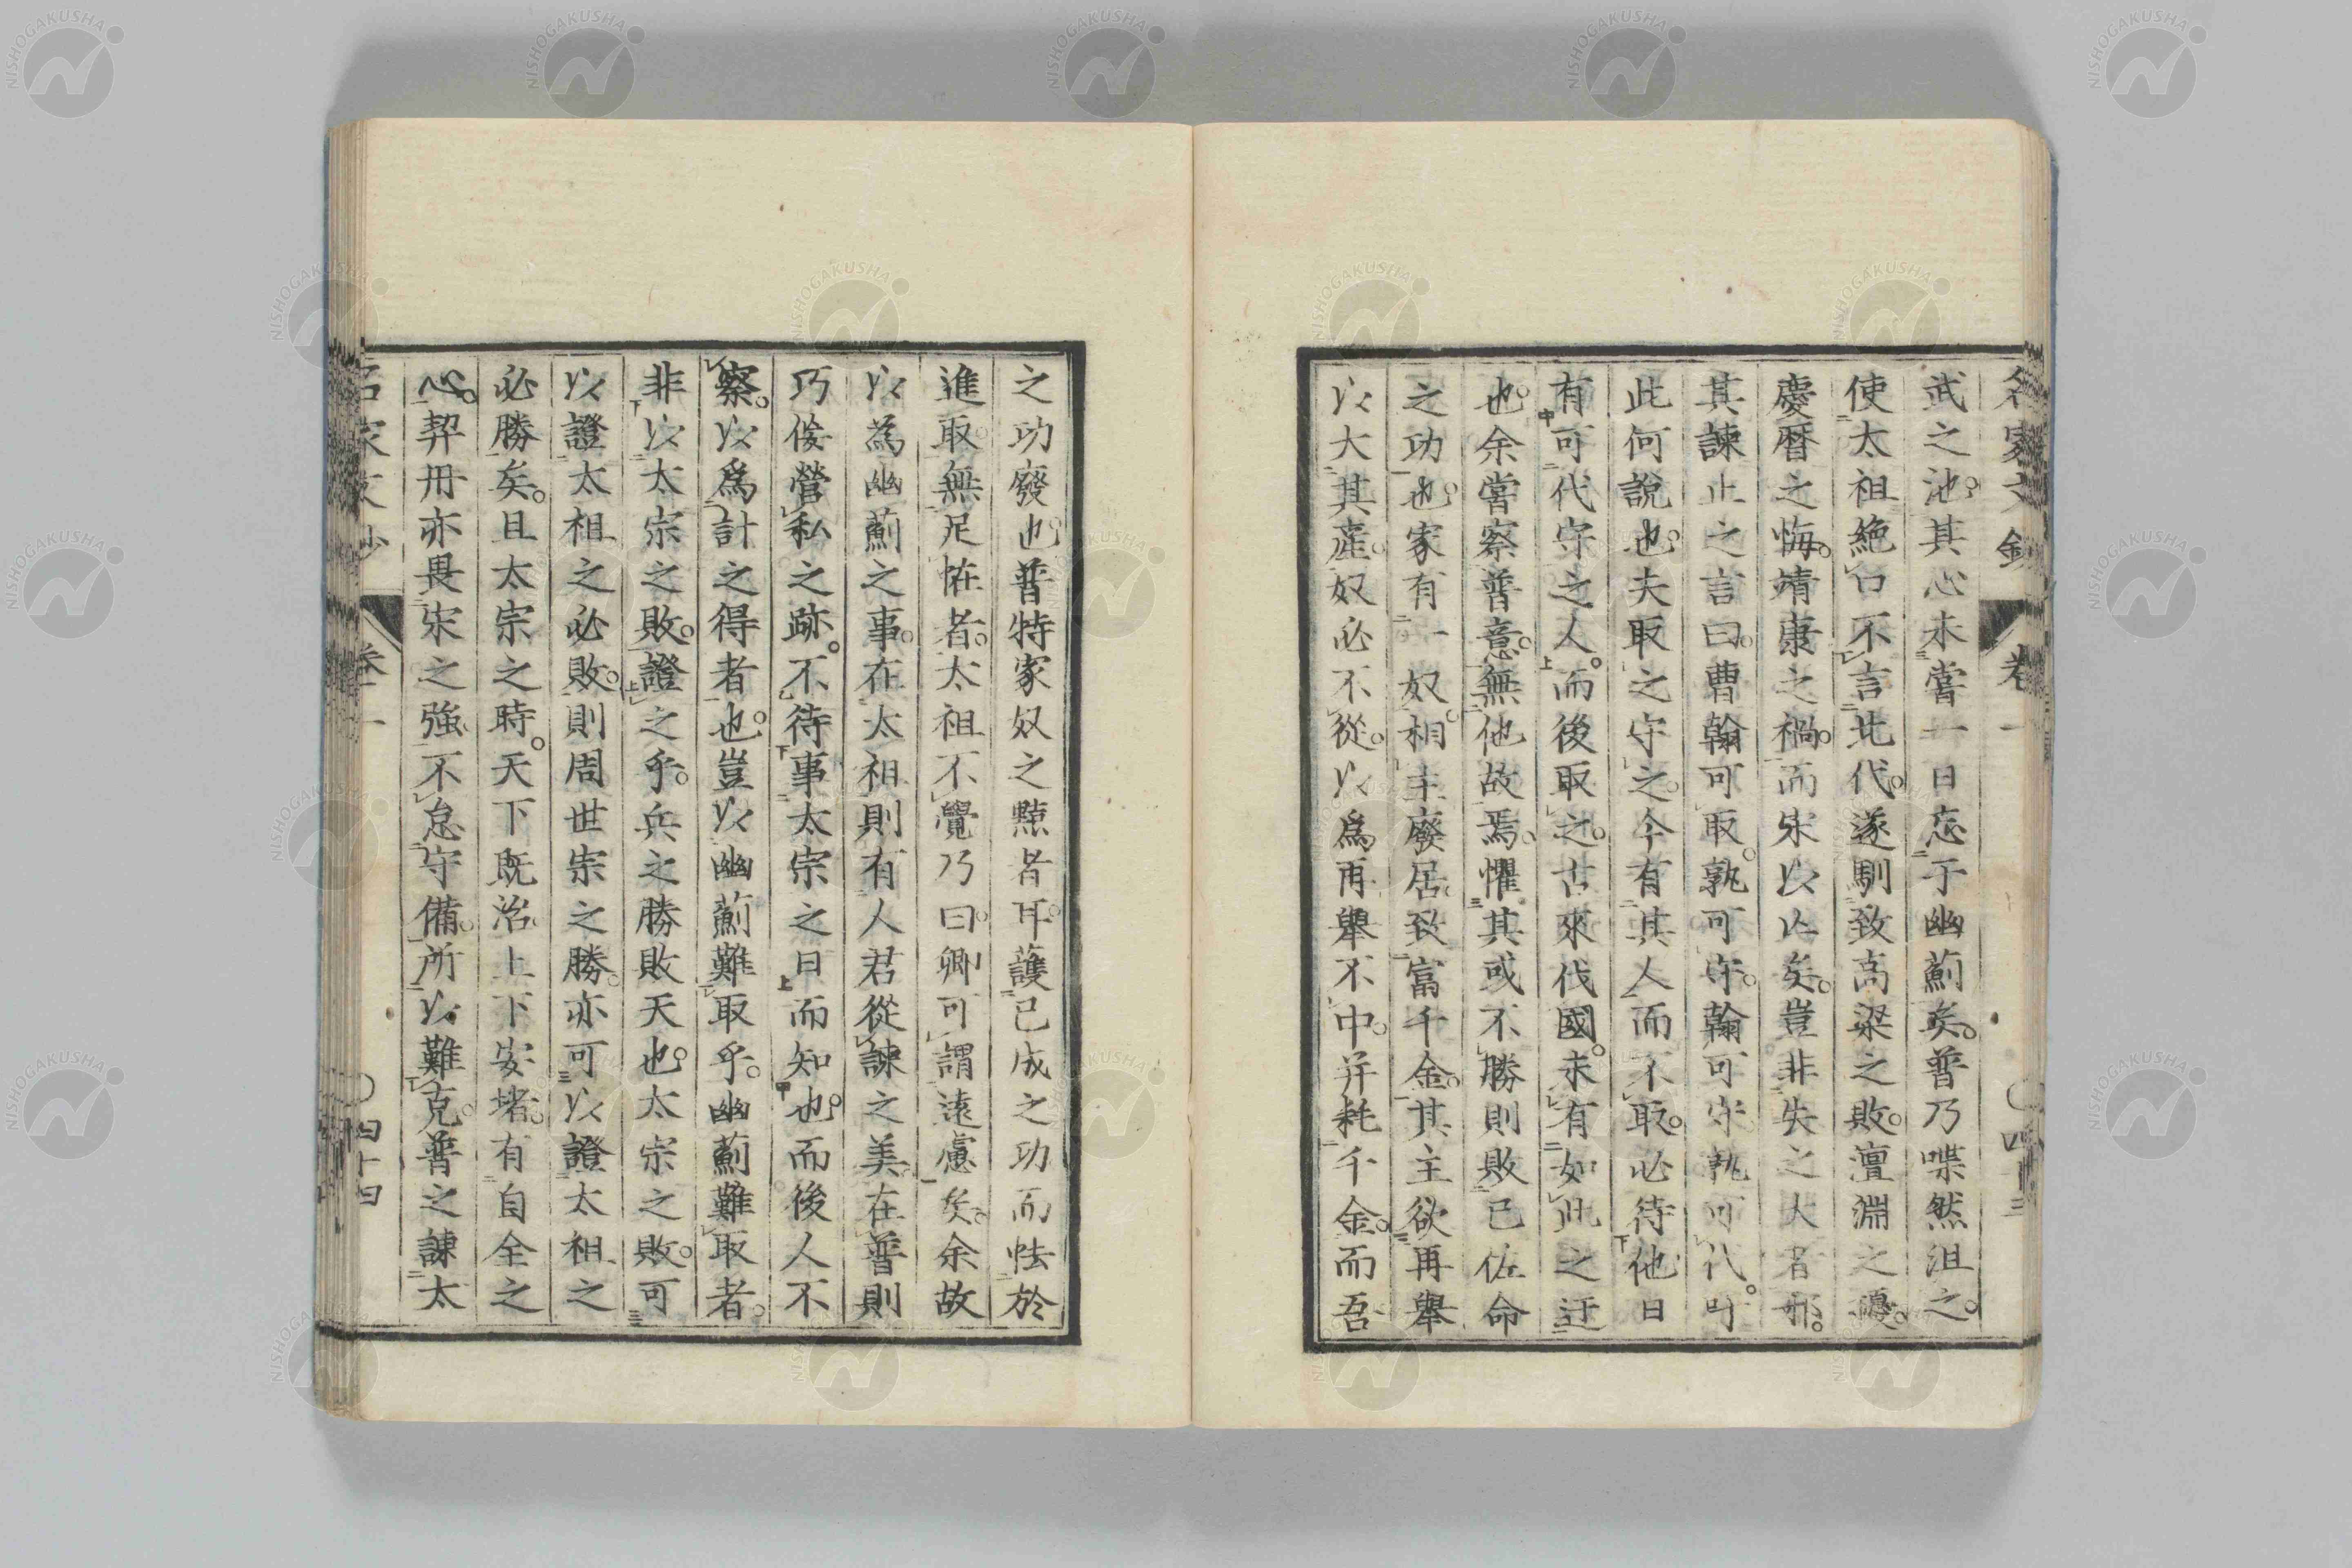 名家文鈔 卷一 〇四十三
武之池。其心未嘗一日忘于幽薊矣。普乃喋然沮之。
使太祖絶口不言北代。遂馴致高梁之敗。澶淵之
慶曆之悔。靖康之禍。而宋以亡矣。豈非失之大者邪。
其諫止之言曰。曹翰可取。孰可守。翰可守孰可代。吁
此何說也。夫取之守之。今有其人而不取。必待他日
有可代守之人。而後取之。古來伐國。未有如此之迂
也。余嘗察普意。無他故焉。懼其或不勝則敗已佐命
之功也。家有一奴。相主廢居。致富千金。其主欲再舉
以大其產。奴必不從。以爲再舉不中。并耗千金。而吾
之功廢也。普特家奴之黠者耳。護已成之功而怯於
進取。無足怪者。太祖不覺乃曰。卿可謂遠慮矣。余故
以為幽薊之事。在太祖則有人君從諫之美。在普則
巧俊營私之跡。不待事太宗之日而知也。而後人不
察。以爲計之得者也。豈以幽薊難取乎。幽薊難取者。
非以太宗之敗。證之乎。兵之勝敗天也。太宗之敗。可
以證太祖之必敗。則周世宗之勝。亦可以證太祖之
必勝矣。且太宗之時。天下既治。上下安堵。有自全之
心。契丹亦畏宋之強。不怠守備。所以難克。普之諫太
名家文鈔 卷一 〇四十四
NISHOGAKUSHA